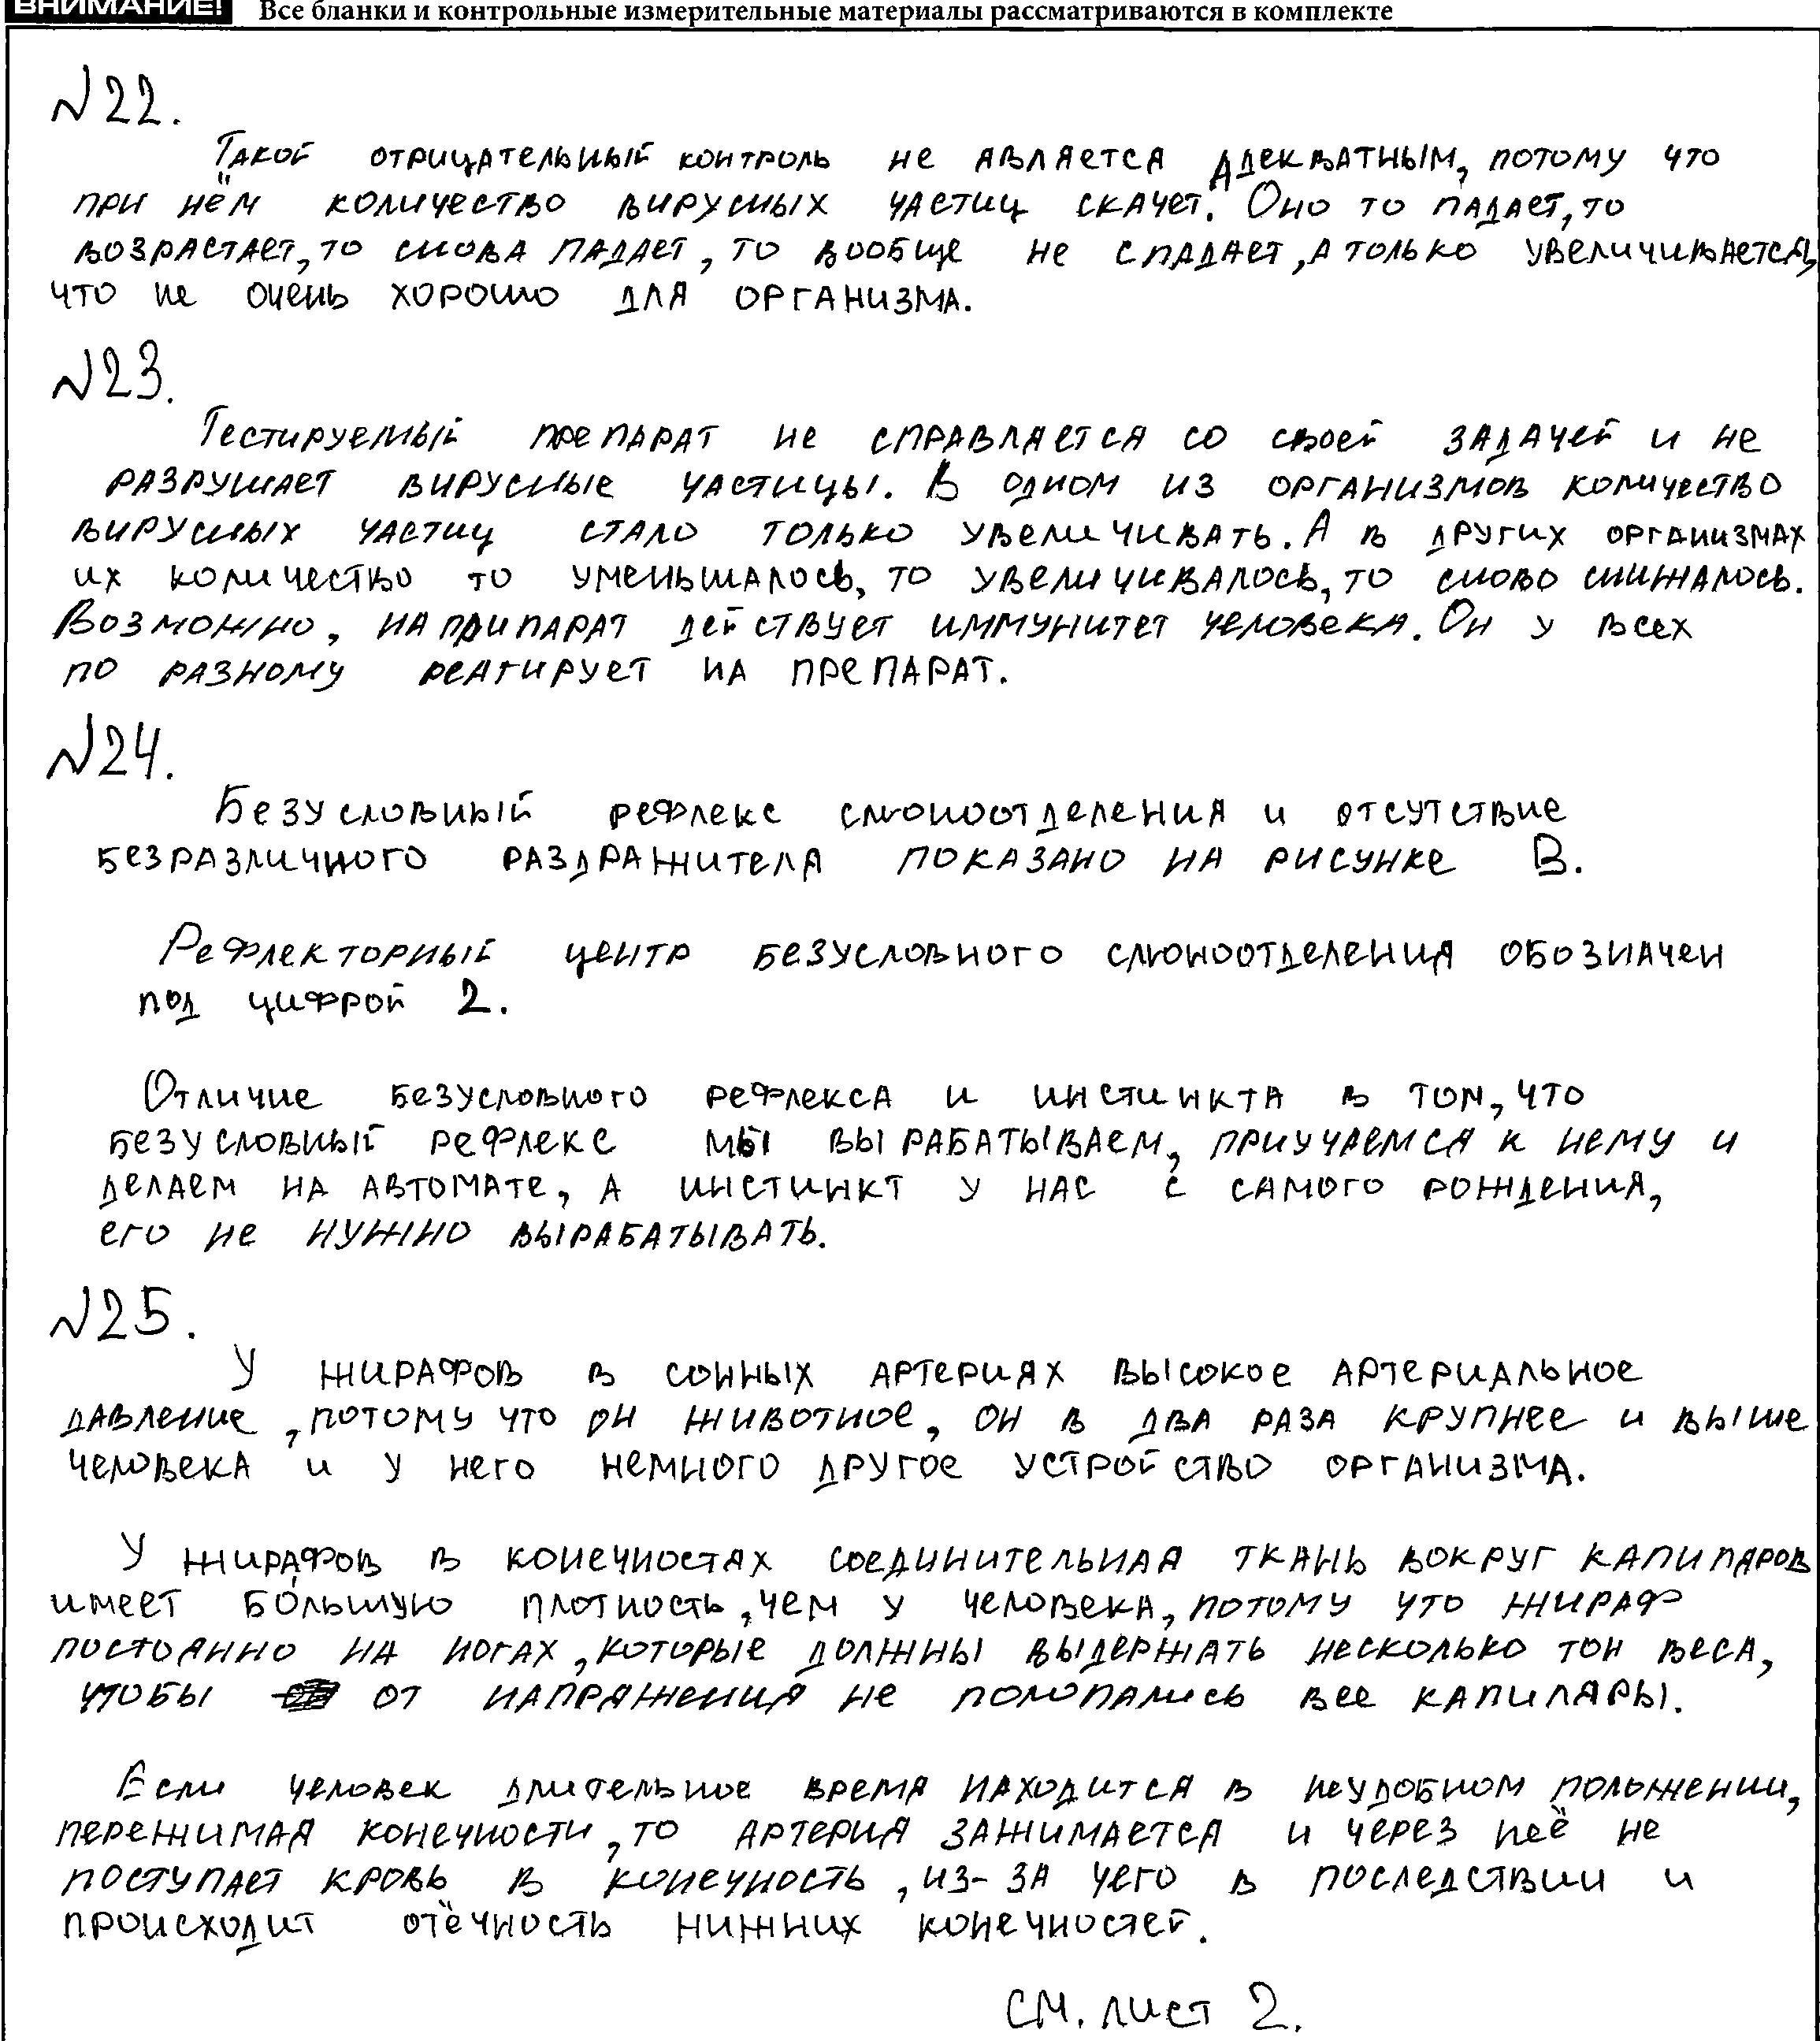 ВНИМАНИЕ! Все бланки и контрольные измерительные материалы рассматриваются в комплекте
№22.
Такой отрицательный контроль не является адекватным, потому что
при нём количество вирусных частиц скачет. Оно то падает, то
возрастает, то снова падает, то вообще не спадает, а только увеличивается,
что не очень хорошо для организма.
№23.
Тестируемый препарат не справляется со своей задачей и не
разрушает вирусные частицы. В одном из организмов количество
вирусных частиц стало только увеличивать. А в других организмах
их количество то уменьшалось, то увеличивалось, то сново снижалось.
Возможно, на припарат действует иммунитет человека. Он у всех
по разному реагирует на препарат.
№24.
Безусловный рефлекс слюноотделения и отсутствие
безразличного раздражителя показано на рисунке В.
Рефлекторный центр безусловного слюноотделения обозначен
под цифрой 2.
Отличие безусловного рефлекса и инстинкта в том, что
безусловный рефлекс мы вырабатываем, приучаемся к нему и
делаем на автомате, а инстинкт у нас с самого рождения,
его не нужно вырабатывать.
№25.
У жирафов в сонных артериях высокое артериальное
давление, потому что он животное, он в два раза крупнее и выше
человека и у него немного другое устройство организма.
У жирафов в конечностях соединительная ткань вокруг капиляров
имеет бо́льшую плотность, чем у человека, потому что жираф
постоянно на ногах, которые должны выдержать несколько тон веса,
чтобы от напряжения не полопались все капиляры.
Если человек длительное время находится в неудобном положении,
пережимая конечности, то артерия зажимается и через неё не
поступает кровь в конечность, из-за чего в последствии и
происходит отёчность нижних конечностей.
см. лист 2.